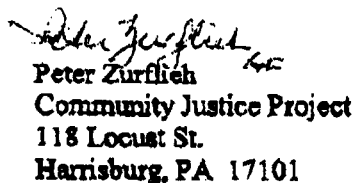 Peter Zurflieh
Peter Zurflieh
Community Justice Project
118 Locust St.
Harrisburg, PA 17101